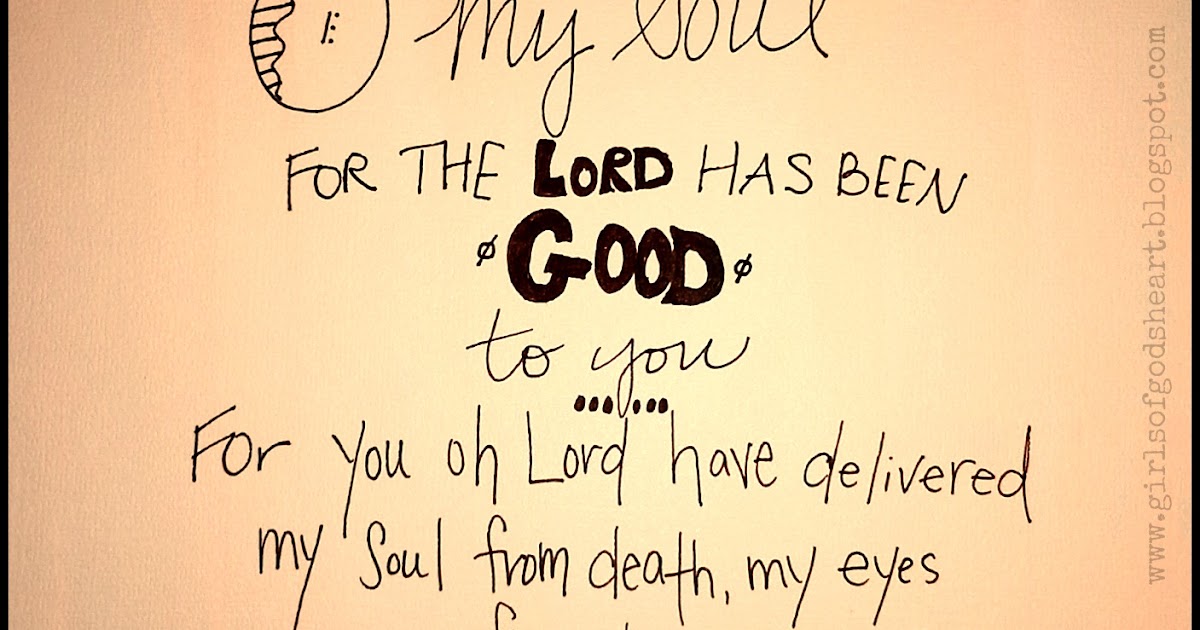 my soul
FOR THE LORD HAS BEEN
GOOD
to you
For you oh Lord have delivered
my soul from death, my eyes
www.girlsofgodsheart.blogspot.com